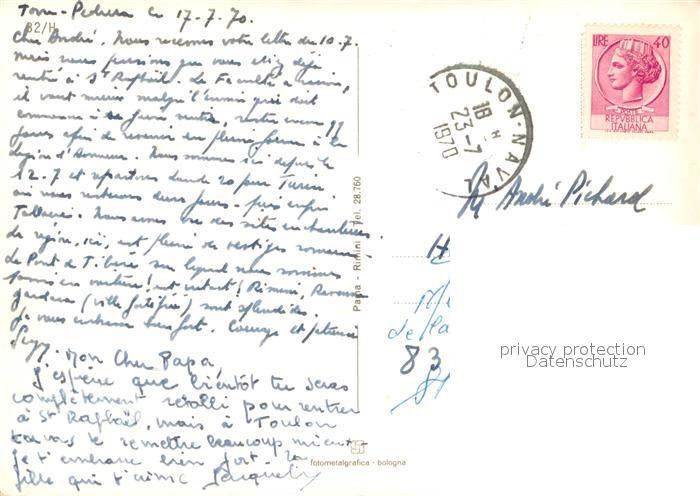 Torre-Pedrera le 17.7.70.
82/H
Cher André. Nous recevons votre lettre du 10.7.
mais nous pensions que vous étiez déjà
rentré à St Raphaël. La Faculté a raison,
il vaut mieux malgré l'ennui qui doit
commencer à se faire sentir, rester encore
jours afin de revenir en pleine forme à la
Légion d'Honneur. Nous sommes ici depuis le
12.7 et repartons lundi 20 pour Turin
où nous resterons deux jours - puis enfin
Nous avons vu des sites enchanteurs
la région, ici, est pleine de vestiges romains,
Le Pont de Tibère sur lequel nous sommes
passés en voiture! est intact! Rimini, Ravenne
Gradara (ville fortifiée) sont splendides.
Je vous embrasse bien fort. Courage et patience
Mon Cher Papa,
J'espère que bientôt tu seras
complètement rétabli pour rentrer
à St Raphaël, mais à Toulon
tu vas te remettre beaucoup mieux -
Je t'embrasse bien fort ta
fille qui t'aime
Rimini - Tel. 28.760
fotometalgrafica - bologna
TOULON-NAVAL
18 H
23-7
1970
LIRE 40
POSTE
REPVBBLICA
ITALIANA
Mr André Pichard
H
de la
83
St
privacy protection
Datenschutz